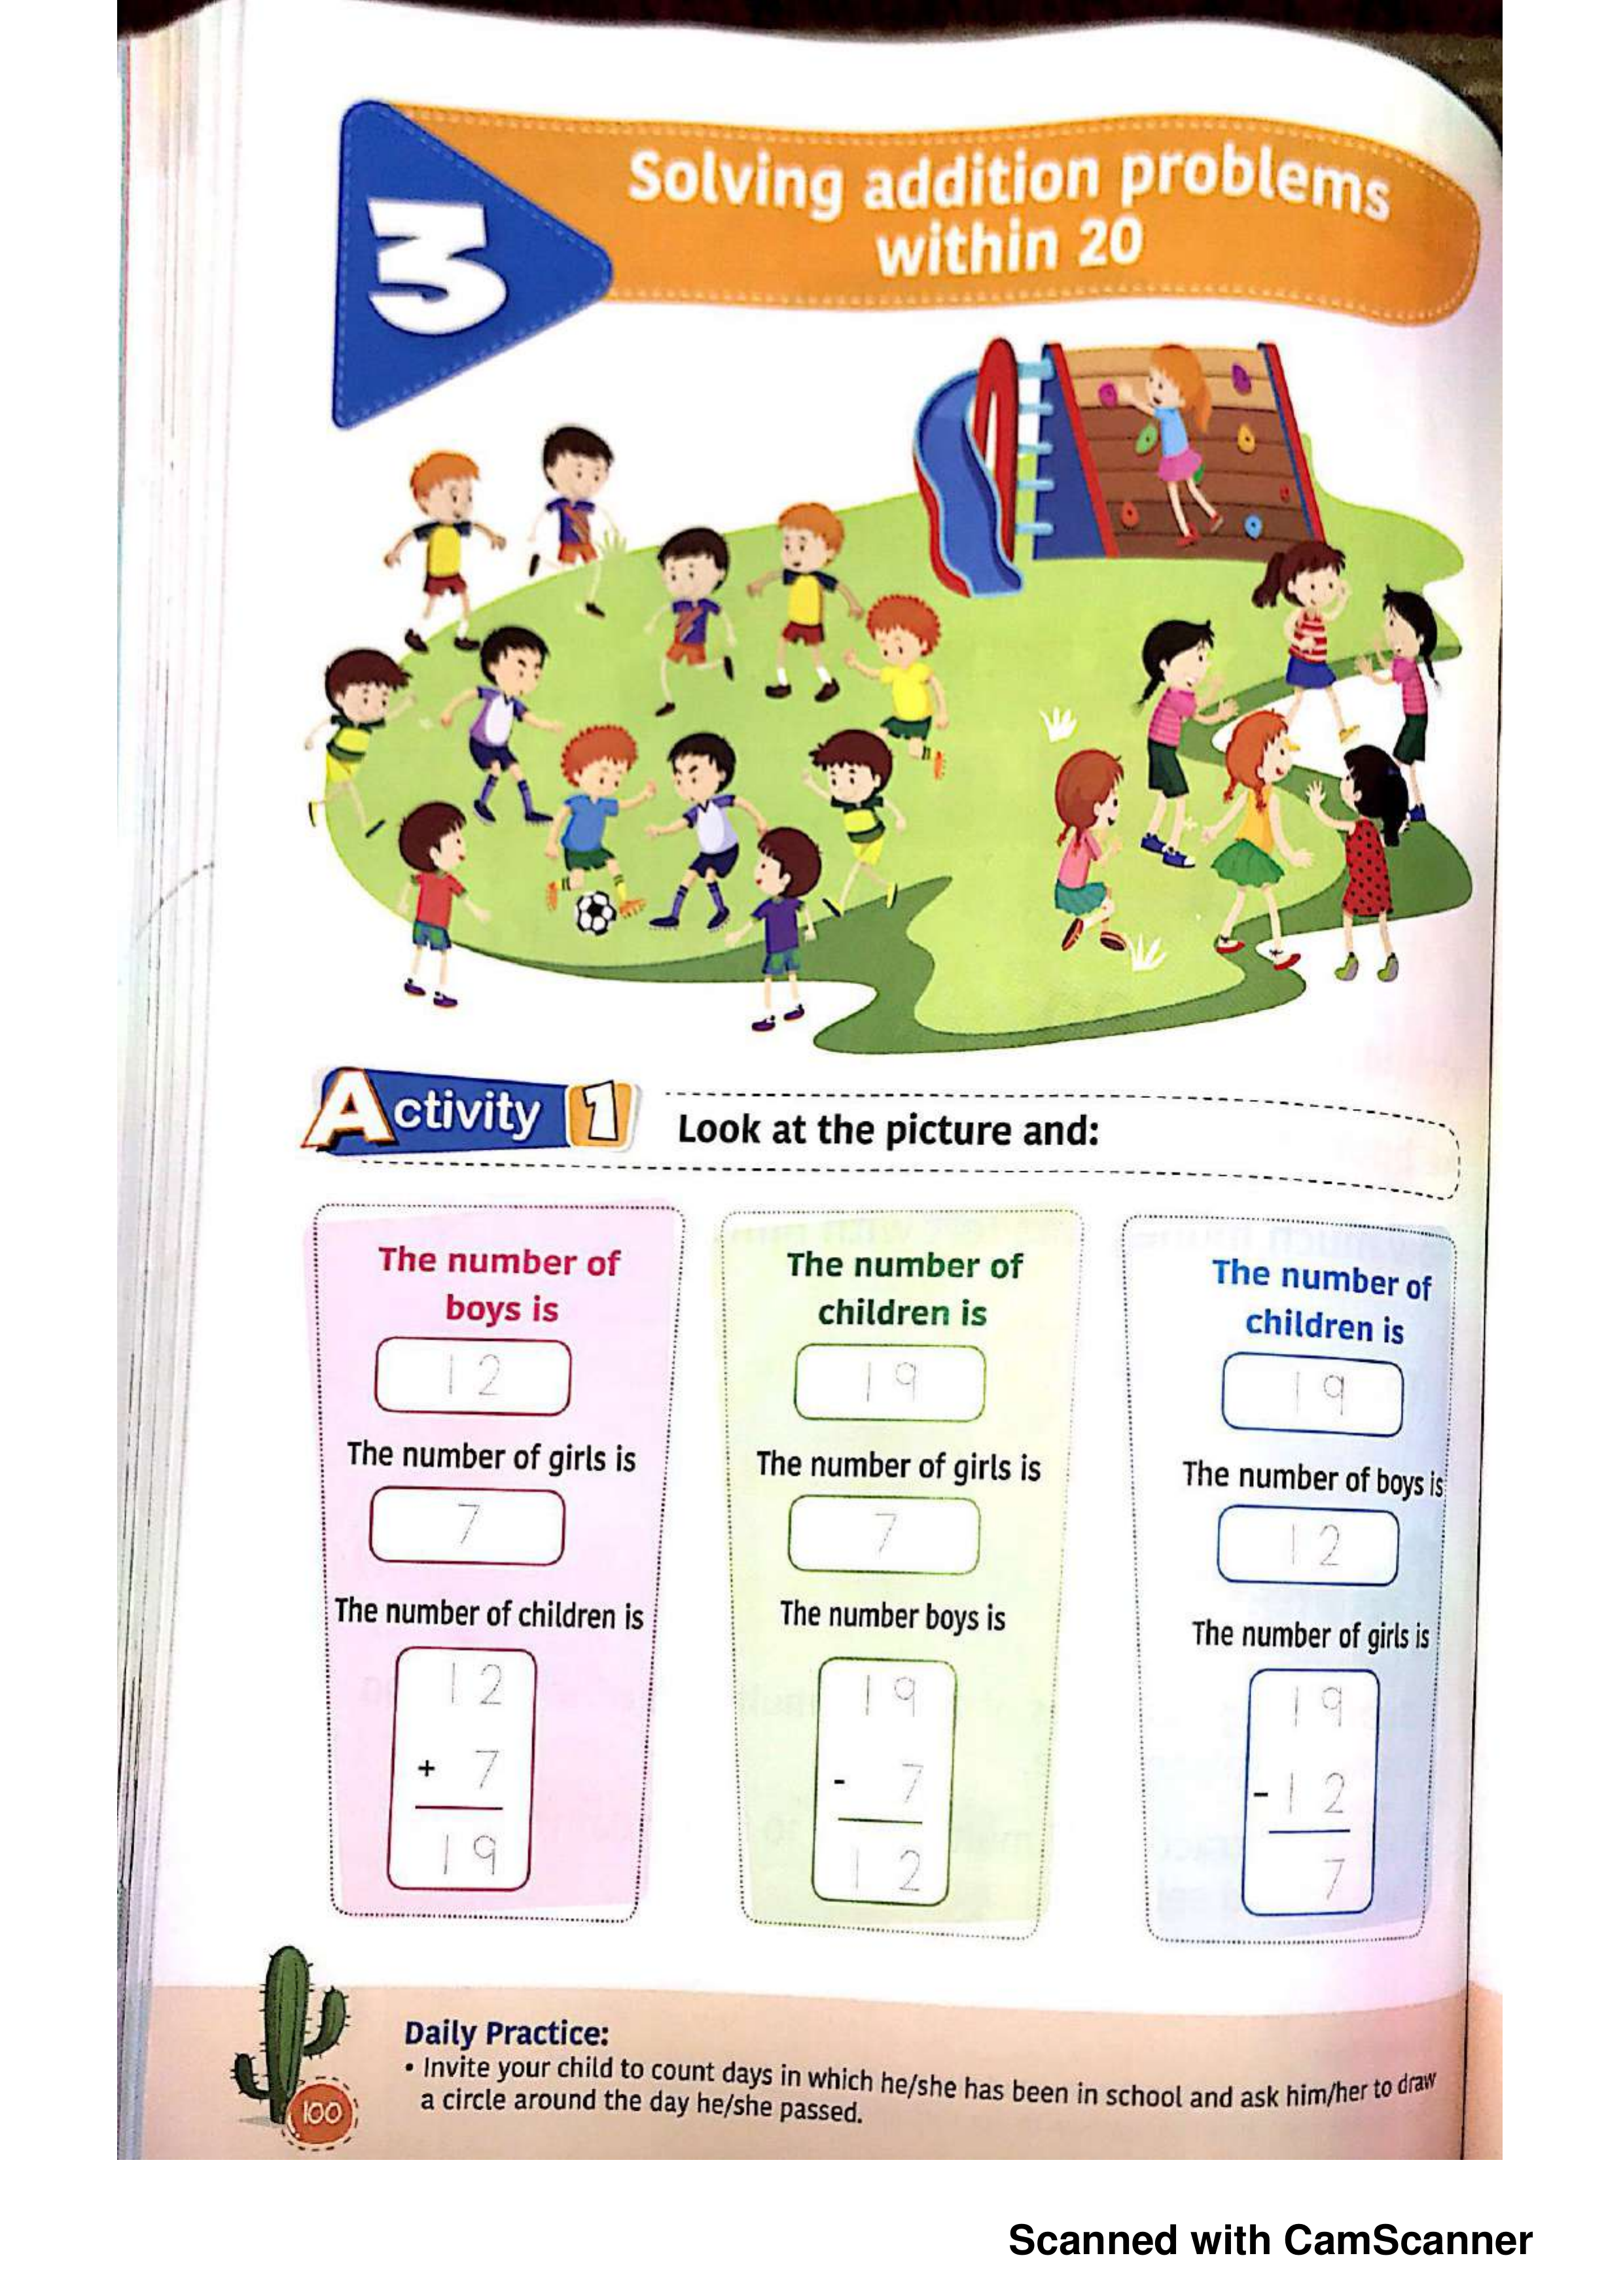 3
Solving addition problems
within 20
Activity 1
Look at the picture and:
The number of
boys is
12
The number of girls is
7
The number of children is
12
+ 7
19
The number of
children is
19
The number of girls is
7
The number boys is
19
- 7
12
The number of
children is
19
The number of boys is
12
The number of girls is
19
- 12
7
Daily Practice:
• Invite your child to count days in which he/she has been in school and ask him/her to draw
a circle around the day he/she passed.
100
Scanned with CamScanner